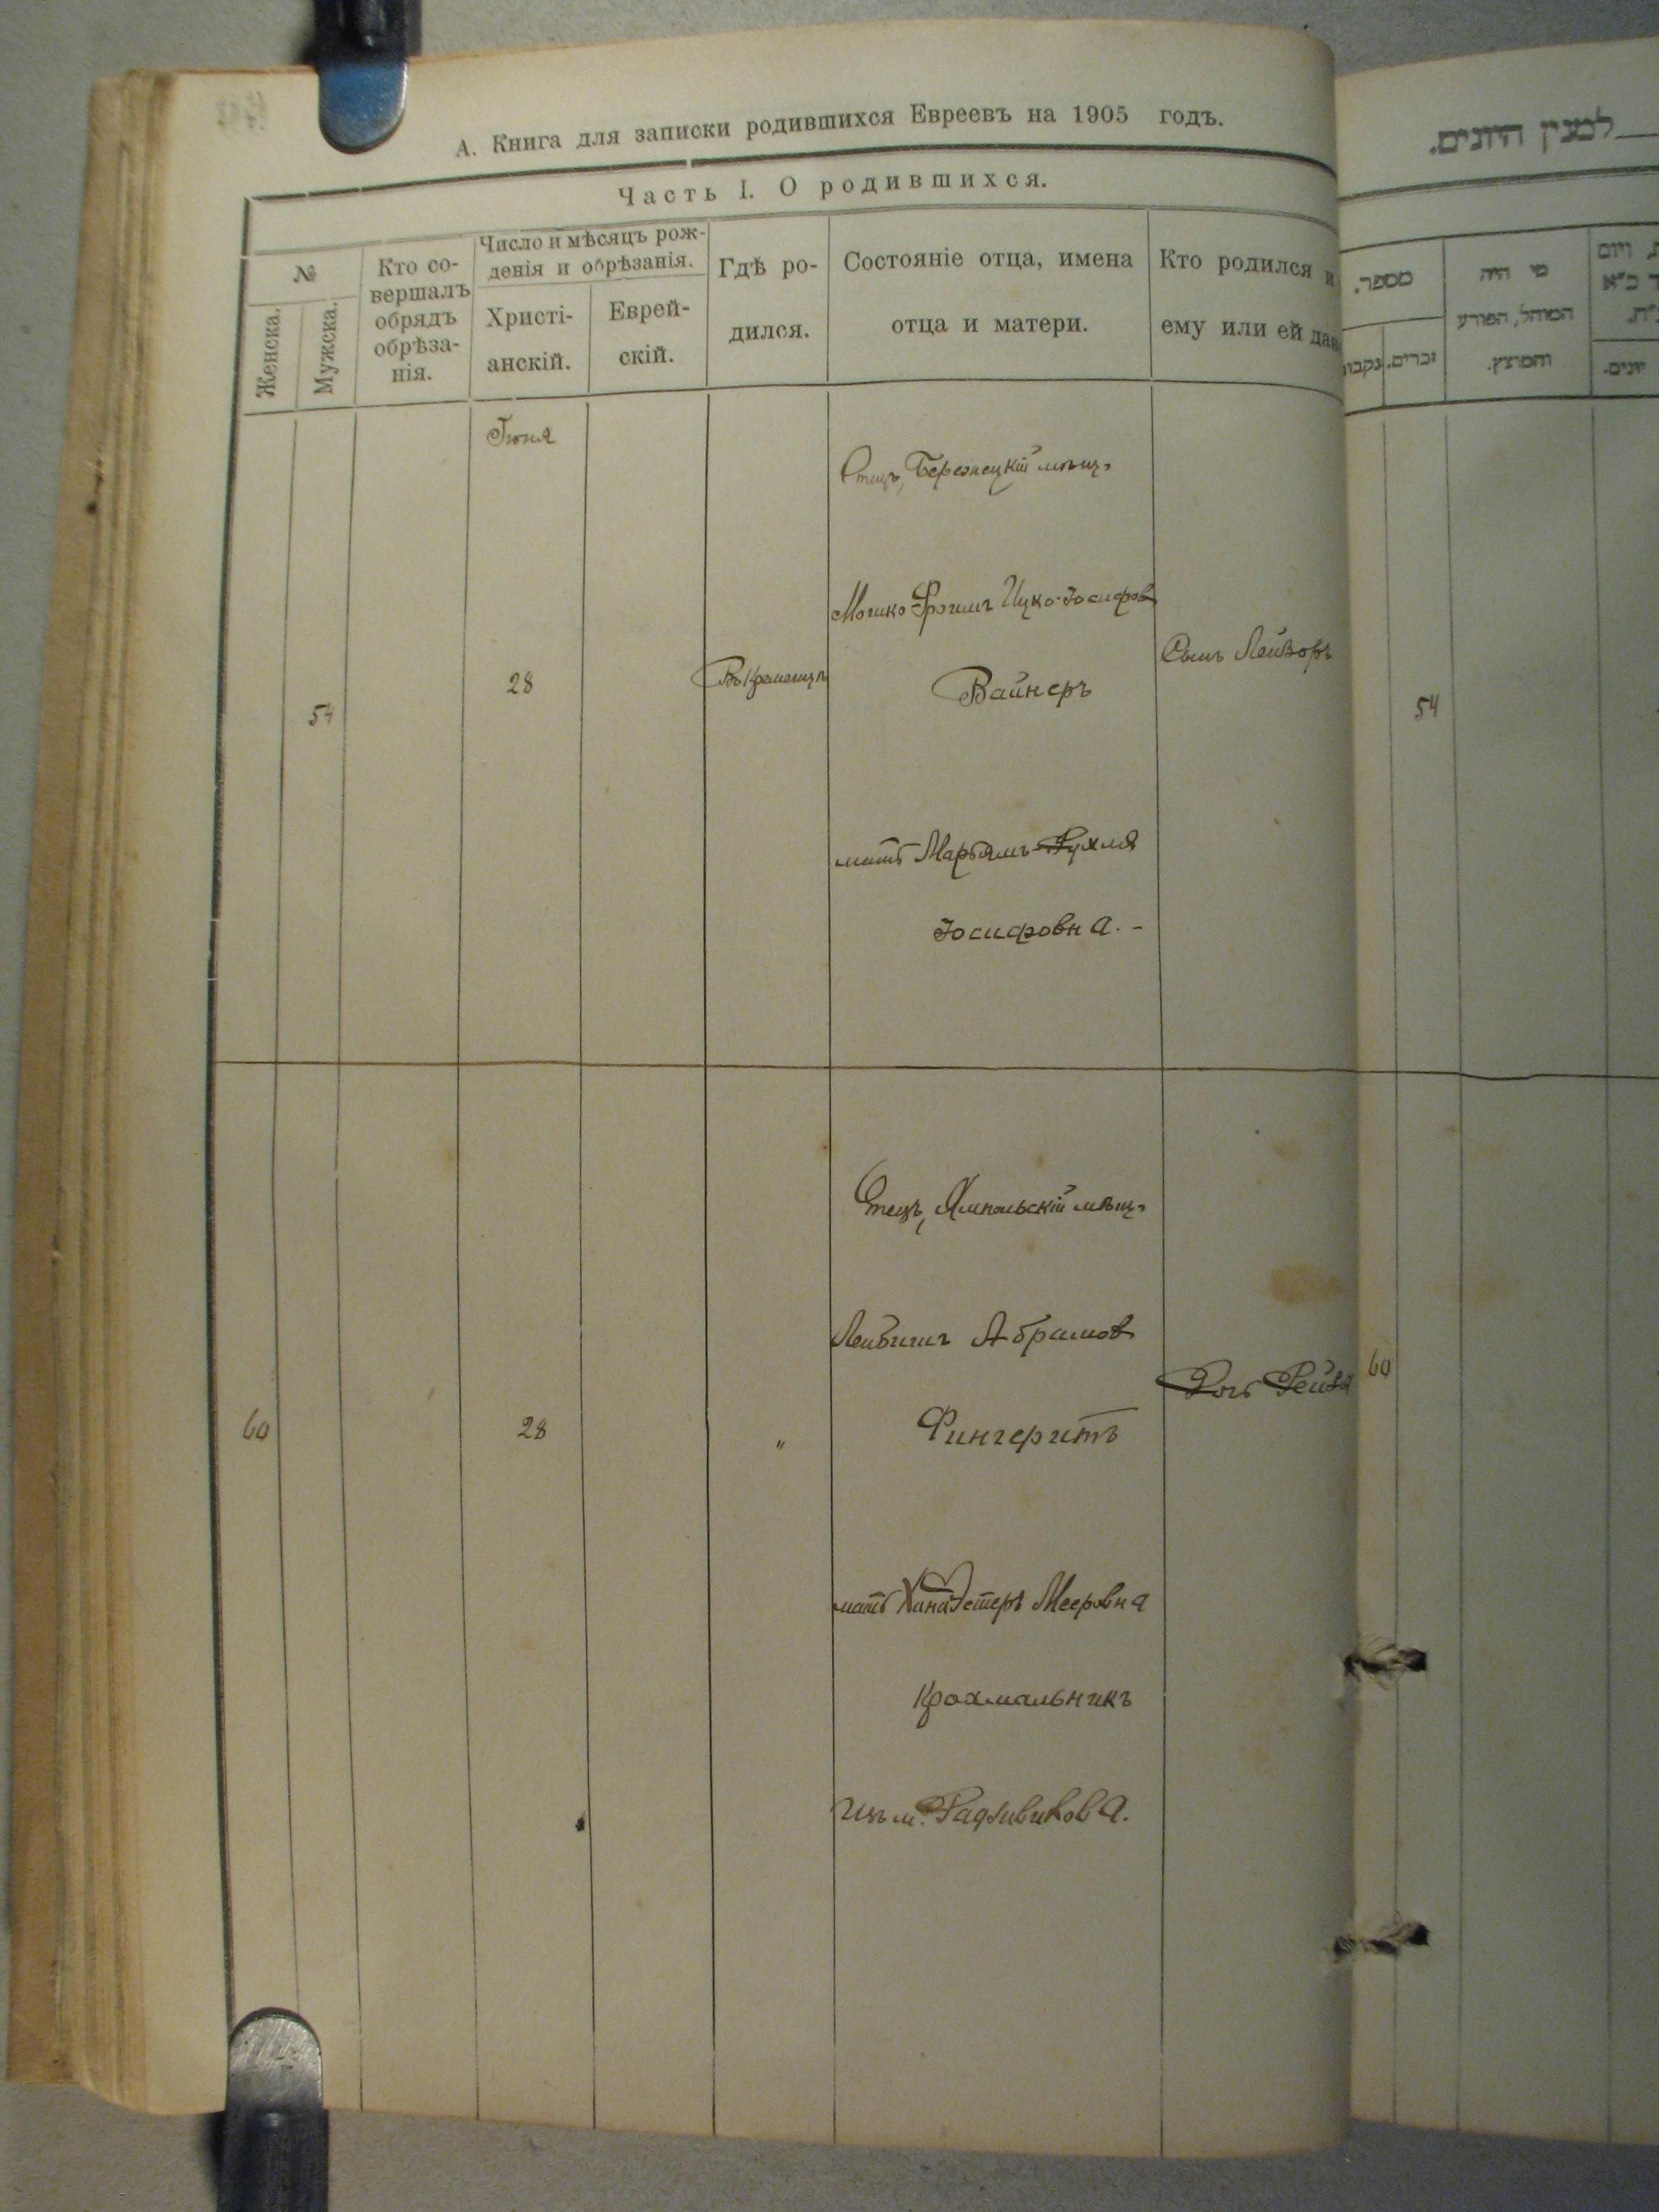 А. Книга для записки родившихся Евреевъ на 1905 годъ.
Часть I. О родившихся.
№
Женска.
Мужска.
Кто со-
вершалъ
обрядъ
обрѣза-
нія.
Число и мѣсяцъ рож-
денія и обрѣзанія.
Христі-
анскій.
Еврей-
скій.
Гдѣ ро-
дился.
Состояніе отца, имена
отца и матери.
Кто родился и
ему или ей дан
Іюня
54
28
Въ Кременцѣ
Отецъ, Бережецкій мѣщ.
Мошко-Фроимъ Ицко-Іосифов
Вайнеръ
мать Марьямъ-Рухля
Іосифовна. -
Сынъ Лейзоръ
60
28
"
Отецъ, Ямпольскій мѣщ.
Лейбишъ Абрамов
Фингерутъ
мать Хана Эстеръ Мееровна
Крохмальникъ
Изъ м. Радзивилова.
Дочь Рейзя
למנין היונים.
מספר.
זכרים.
נקבות
מי היה
המוהל, הפורע
והמוצץ.
יונים.
54
60